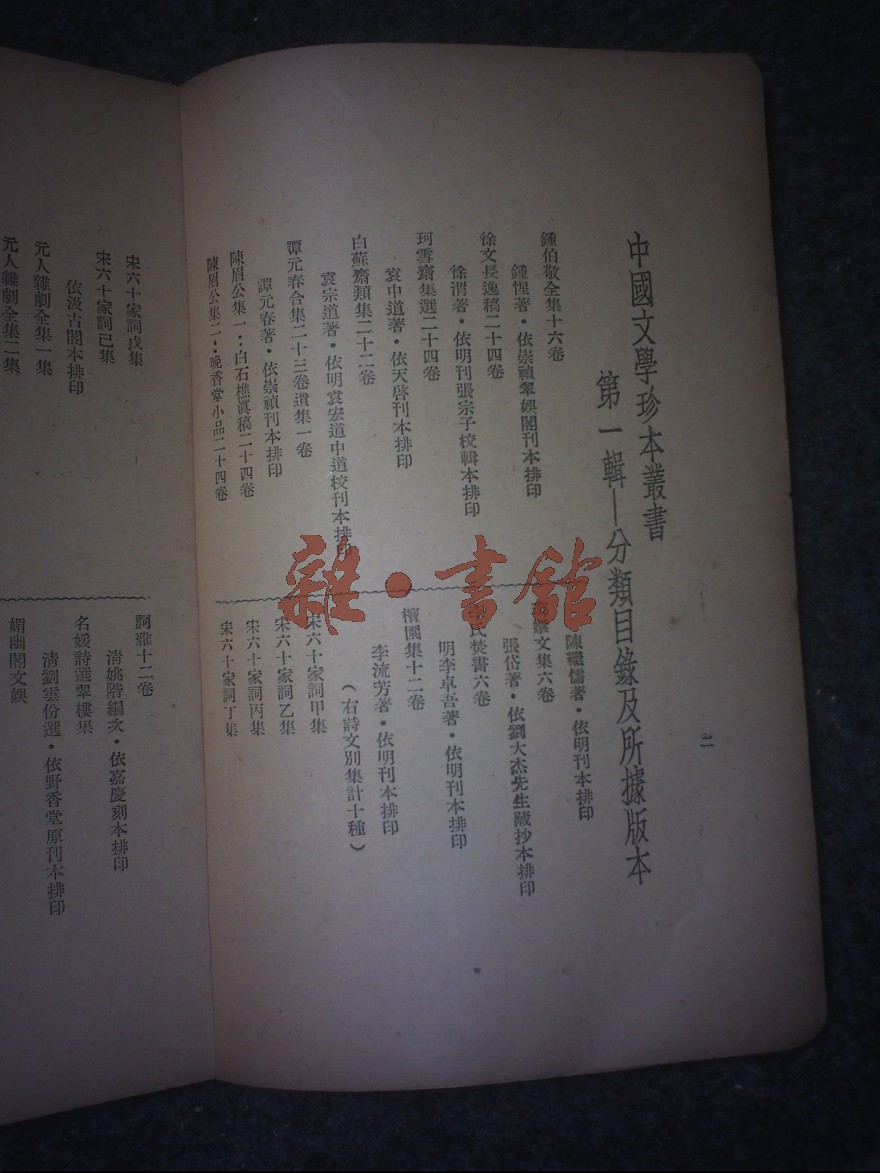 中國文學珍本叢書
第一輯—分類目錄及所據版本
二
鍾伯敬全集十六卷
鍾惺著・依崇禎翠娛閣刊本排印
徐文長逸稿二十四卷
徐渭著・依明刊張宗子校輯本排印
珂雪齋集選二十四卷
袁中道著・依天啓刊本排印
白蘇齋類集二十二卷
袁宗道著・依明袁宏道中道校刊本排印
譚元春合集二十三卷遺集一卷
譚元春著・依崇禎刊本排印
陳眉公集一：白石樵眞稿二十四卷
陳眉公集二・晚香堂小品二十四卷
陳繼儒著・依明刊本排印
文集六卷
張岱著・依劉大杰先生藏抄本排印
氏焚書六卷
明李卓吾著・依明刊本排印
檀園集十二卷
李流芳著・依明刊本排印
（右詩文別集計十種）
宋六十家詞甲集
宋六十家詞乙集
宋六十家詞丙集
宋六十家詞丁集
宋六十家詞戊集
宋六十家詞己集
依汲古閣本排印
元人雜劇全集一集
元人雜劇全集二集
詞雅十二卷
清姚階編次・依嘉慶刻本排印
名媛詩選翠樓集
清劉雲份選・依野香堂原刊本排印
媚幽閣文娛
雜・書館